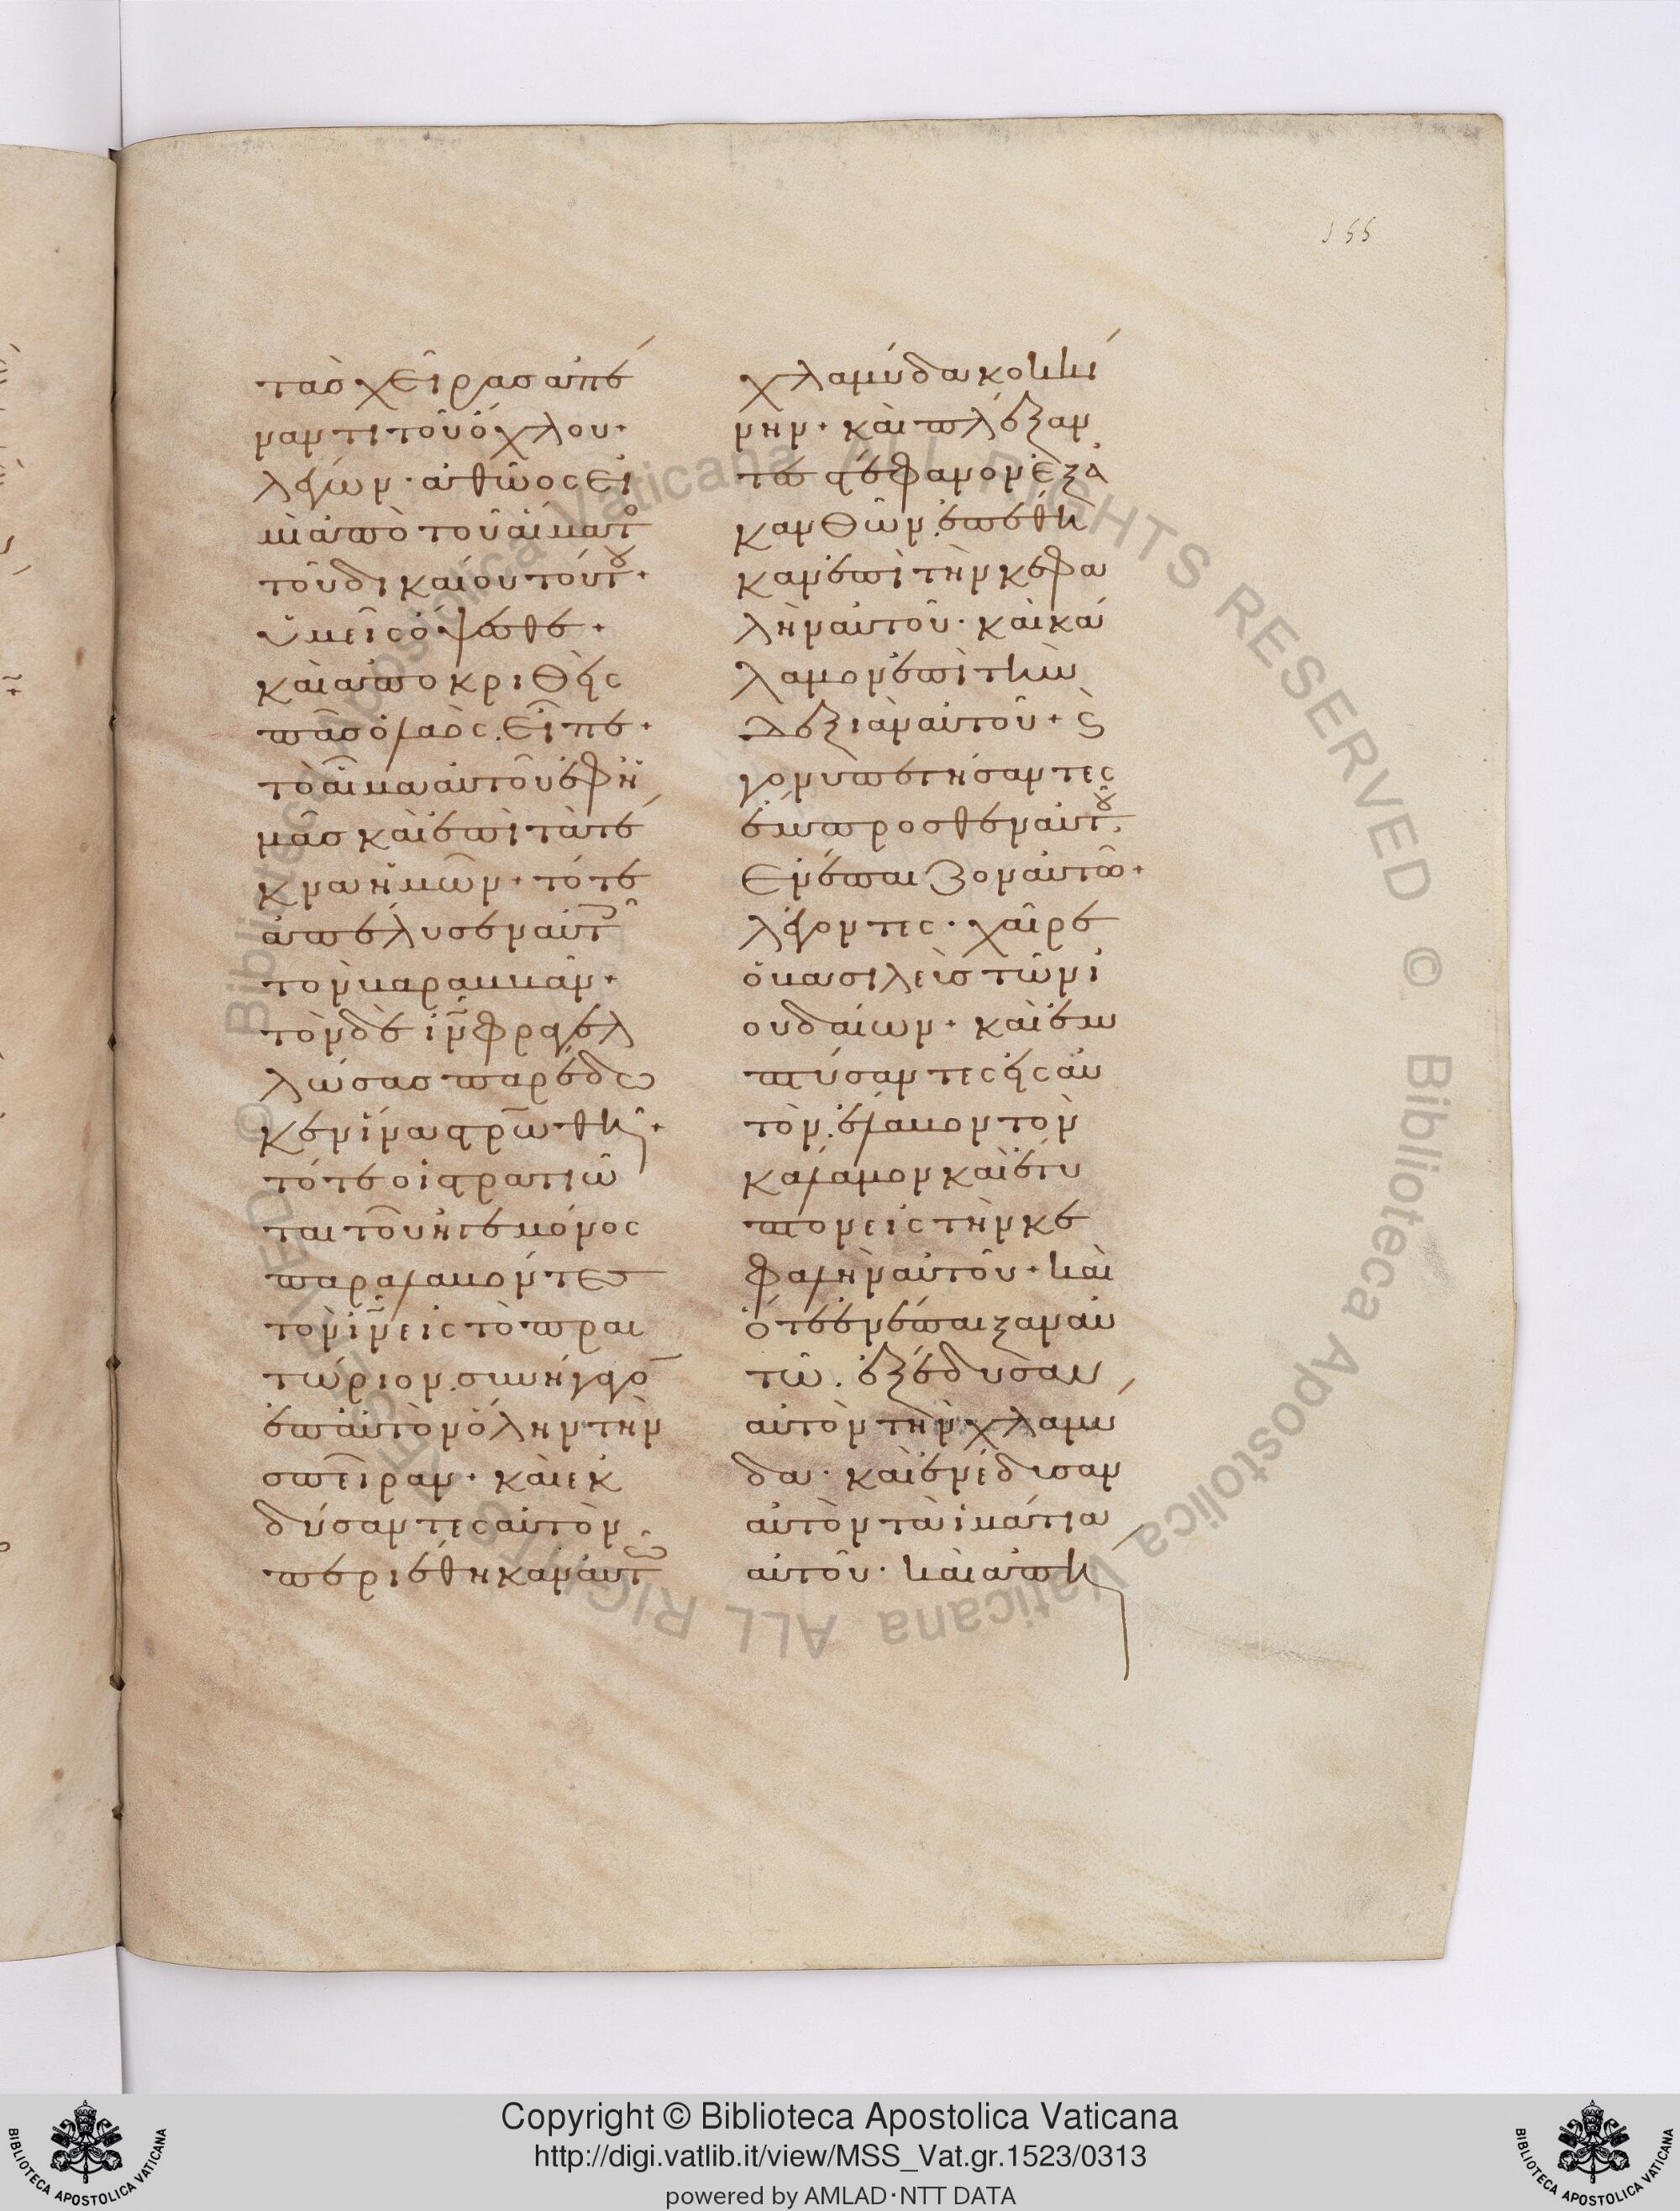 155
τὰσ χεῖρασ ἀπέ
ναντι τοῦ ὄχλου·
λέγων· ἀθῶος εἰ
μὶ ἀπὸ τοῦ αἵματο
τοῦ δικαίου τούτου·
ὑμεῖς ὄψεσθε·
καὶ ἀποκριθεὶς
πᾶσ ὁ λαὸς. εἶπε·
τὸ αἷμα αὐτοῦ ἐφ ἡ
μᾶσ καὶ ἐπὶ τὰ τέ
κνα ἡμῶν· τότε
ἀπέλυσεν αὐτοῖ
τὸν βαραββᾶν·
τὸν δὲ ιν φραγελ
λώσασ παρέδω
κεν ἵνα στρωθῆ·
τότε οἱ στρατιῶ
ται τοῦ ἡγεμόνος
παραλαβόντες
τὸν ιν εἰς τὸ πραι
τώριον. συνήγαγο
ἐπ αὐτὸν ὅλην τὴν
σπεῖραν· καὶ ἐκ
δύσαντες αὐτὸν
περιέθηκαν αὐτῶ
χλαμύδα κοκκί
νην· καὶ πλέξαν
τες στέφανον ἐξ ἀ
κανθῶν. ἐπέθη
καν ἐπὶ τὴν κεφα
λὴν αὐτοῦ· καὶ κά
λαμον ἐπὶ τὴν
δεξιὰν αὐτοῦ· ϛ
γονυπετήσαντες
ἔμπροσθεν αὐτοῦ.
ἐνέπαιζον αὐτῶ·
λέγοντες· χαῖρε
ὁ βασιλεὺσ τῶν ἰ
ουδαίων· καὶ ἐμ
πτύσαντες εἰς αὐ
τὸν. ἔλαβον τὸν
κάλαμον καὶ ἔτυ
πτον εἰς τὴν κε
φαλὴν αὐτοῦ· καὶ
ὅτε ἐνέπαιξαν αὐ
τῶ. ἐξέδυσαν
αὐτὸν τὴν χλαμύ
δα· καὶ ἐνέδυσαν
αὐτὸν τὰ ἱμάτια
αὐτοῦ· καὶ ἀπή
© Biblioteca Apostolica Vaticana ALL RIGHTS RESERVED © Biblioteca Apostolica Vaticana ALL RIGHTS RESERVED
Copyright © Biblioteca Apostolica Vaticana
http://digi.vatlib.it/view/MSS_Vat.gr.1523/0313
powered by AMLAD·NTT DATA
BIBLIOTECA APOSTOLICA VATICANA
BIBLIOTECA APOSTOLICA VATICANA